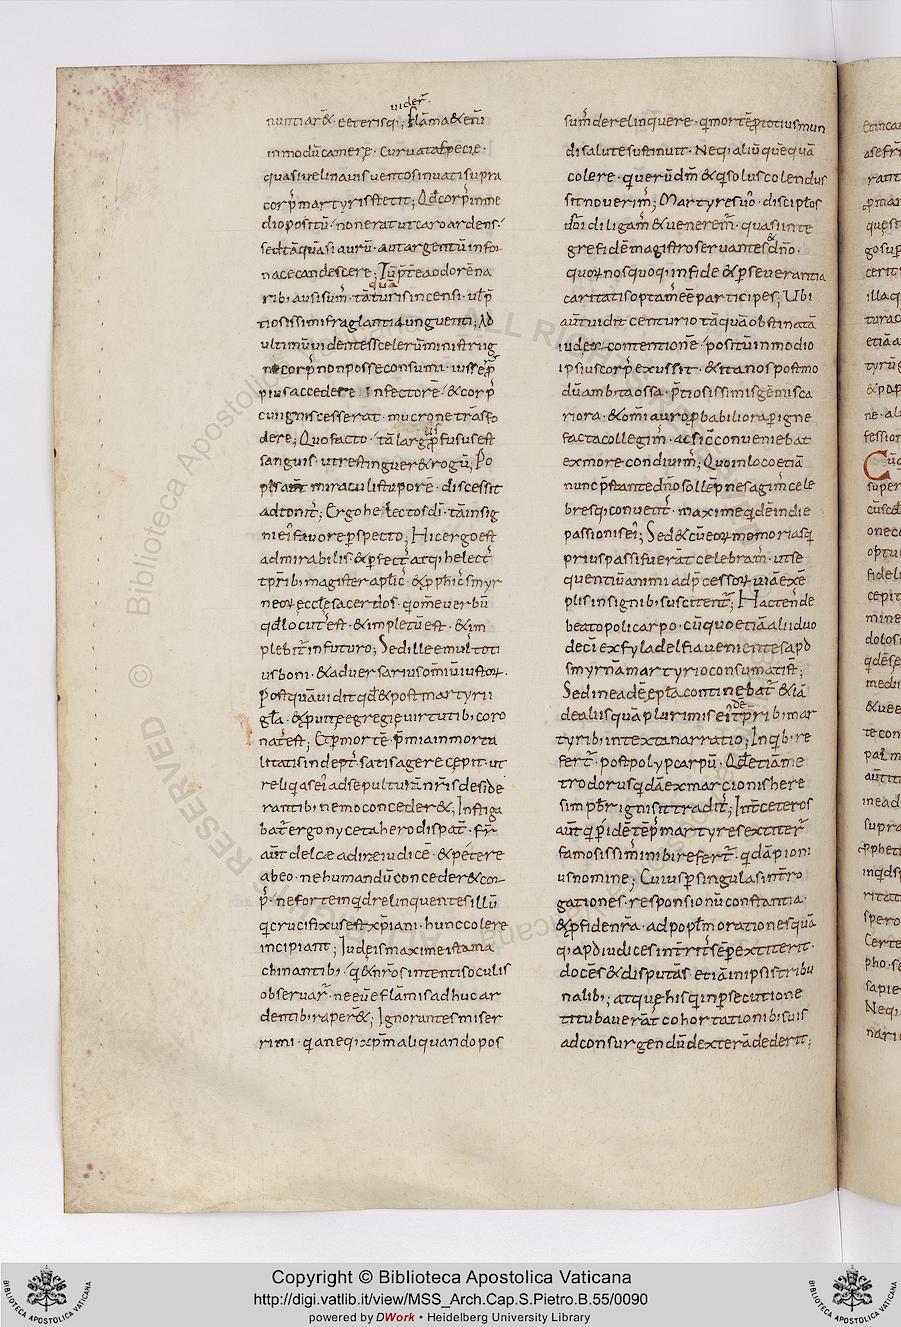 uider̄.
nuntiar&. ceterisq;; Flāma & enī
in modū camerę. Curuata specie.
quasi uelinauis uentosinuati supra
corp' martyris stetit; Qd̄ corp' in me
dio positū. non erat ut caro ardens.
sed tāquā si aurū. aut argentū in for
nace candescere; Iūp̄tea odorē na
rib; ausisum'. tā quā turis incensi. ul p̄
tiosissimi fraglantis unguenti; Ad
ultimū uidentes scelerū ministri ig
ne corp' non posse consumi. iusser̄
propius accedere infectorē. & corp'
cui ignis cesserat. mucrone trāsfo
dere; Quo facto. tā larg' p̄fusus est
sanguis. ut restingueret rogū; Po
pl's aūt miraculi stupore. discessit
adtonit'; Ergo he lectos dī. tā insig
ni ei' fauore perspecto; Hic ergo est
admirabilis. & p̄fect' atq; helect'
t̄prib; magister aplic'. & p̄phic' smyr
neoꝝ eccłe sacerdos. q ome uerbū
qd locut' est. & impletū est. & im
plebit' in futuro; Sed ille emul' toti
us boni. & aduersarius omniū iustoꝝ.
Postquā uidit qd & post martyrii
gła. & p uitę egregię uirtutib; coro
nat' est; Et p mortē. p̄mia inmorta
litatis indept'. satis agere cępit. ut
reliquias ei' ad sepulturā nr̄is deside
rantib; nemo concederet; Instiga
bat' ergo nyceta herodis pat̄. fr̄
aūt delcæ adire iudicē. & petere
ab eo. ne humandū concederet cor
p'. ne forte inqd relinquentes illū
q crucifixus est xp̄iani. hunc colere
incipiant; Iudeis maxime ista ma
chinantib;. q & nr̄os intentis oculis
obseruar̄. ne eū e flāmis adhuc ar
dentib; raperet; Ignorantes miser
rimi. qa neq; xp̄m aliquando pos
sum' derelinquere. q mortē p totius mun
di salute sustinuit. Neq; aliū quēquā
colere. q uerū dm̄ & q solus colendus
sit nouerim'; Martyres uo. discipłos
dn̄i diligam' & uenerem̄. quasi inte
gre fidē magistro seruantes & dn̄o.
quoꝝ nos quoq; in fide & perseuerantia
caritatis optam' ēē participes; Ubi
aūt uidit centurio tāquā obstinatā
iudeoꝝ contentionē. positū in modio
ipsius corp' exussit. & ita nos postmo
dū ambita ossa. p̄tiosissimis gēmis ca
riora. & omi auro p̄babiliora p igne
facta collegim'. ac sic' conueniebat
ex more condiuim'; Quo in loco etiā
nunc p̄stante dn̄o sollēpnes agim' cele
bres q; conuent'. maxime qdē in die
passionis ei'; Sed & cū eoꝝ memorias q
prius passi fuerāt celebram'. ut se
quentiū animi ad p̄cessoꝝ uiā exē
plis insignib; suscitent̄; Hacten' de
beato policarpo. cū quo etiā alii duo
decī ex fyladelfia uenientes apd
smyrnā martyrio consumati st̄;
Sed in eadē epła contineba͞t & iā
de aliis quā plurimis ei' de t̄prib; mar
tyrib; intexta narratio; In qb; re
fert̄. post polypcarpū. Qdē tiā me
trodorus qdā ex marcionis here
si ' pb̄r ignis it' tradit'; Int̄ ceteros
aūt q p idē tēp' martyres extiter̄
famosissim' inibi refert̄. qdā pion
us nomine; Cuius p singulas int̄ro
gationes. responsionū constantia.
& p fide nr̄a. ad popłm orationes quā
q; apd iudices int̄rit' sēp extiterit.
docēs & disputās. etiā in ipsis tribu
nalib;; atque his q in p̄secutione
titubauerāt cohortationib; suis
ad consurgendū dexterā dederit;
Copyright © Biblioteca Apostolica Vaticana
http://digi.vatlib.it/view/MSS_Arch.Cap.S.Pietro.B.55/0090
powered by DWork • Heidelberg University Library